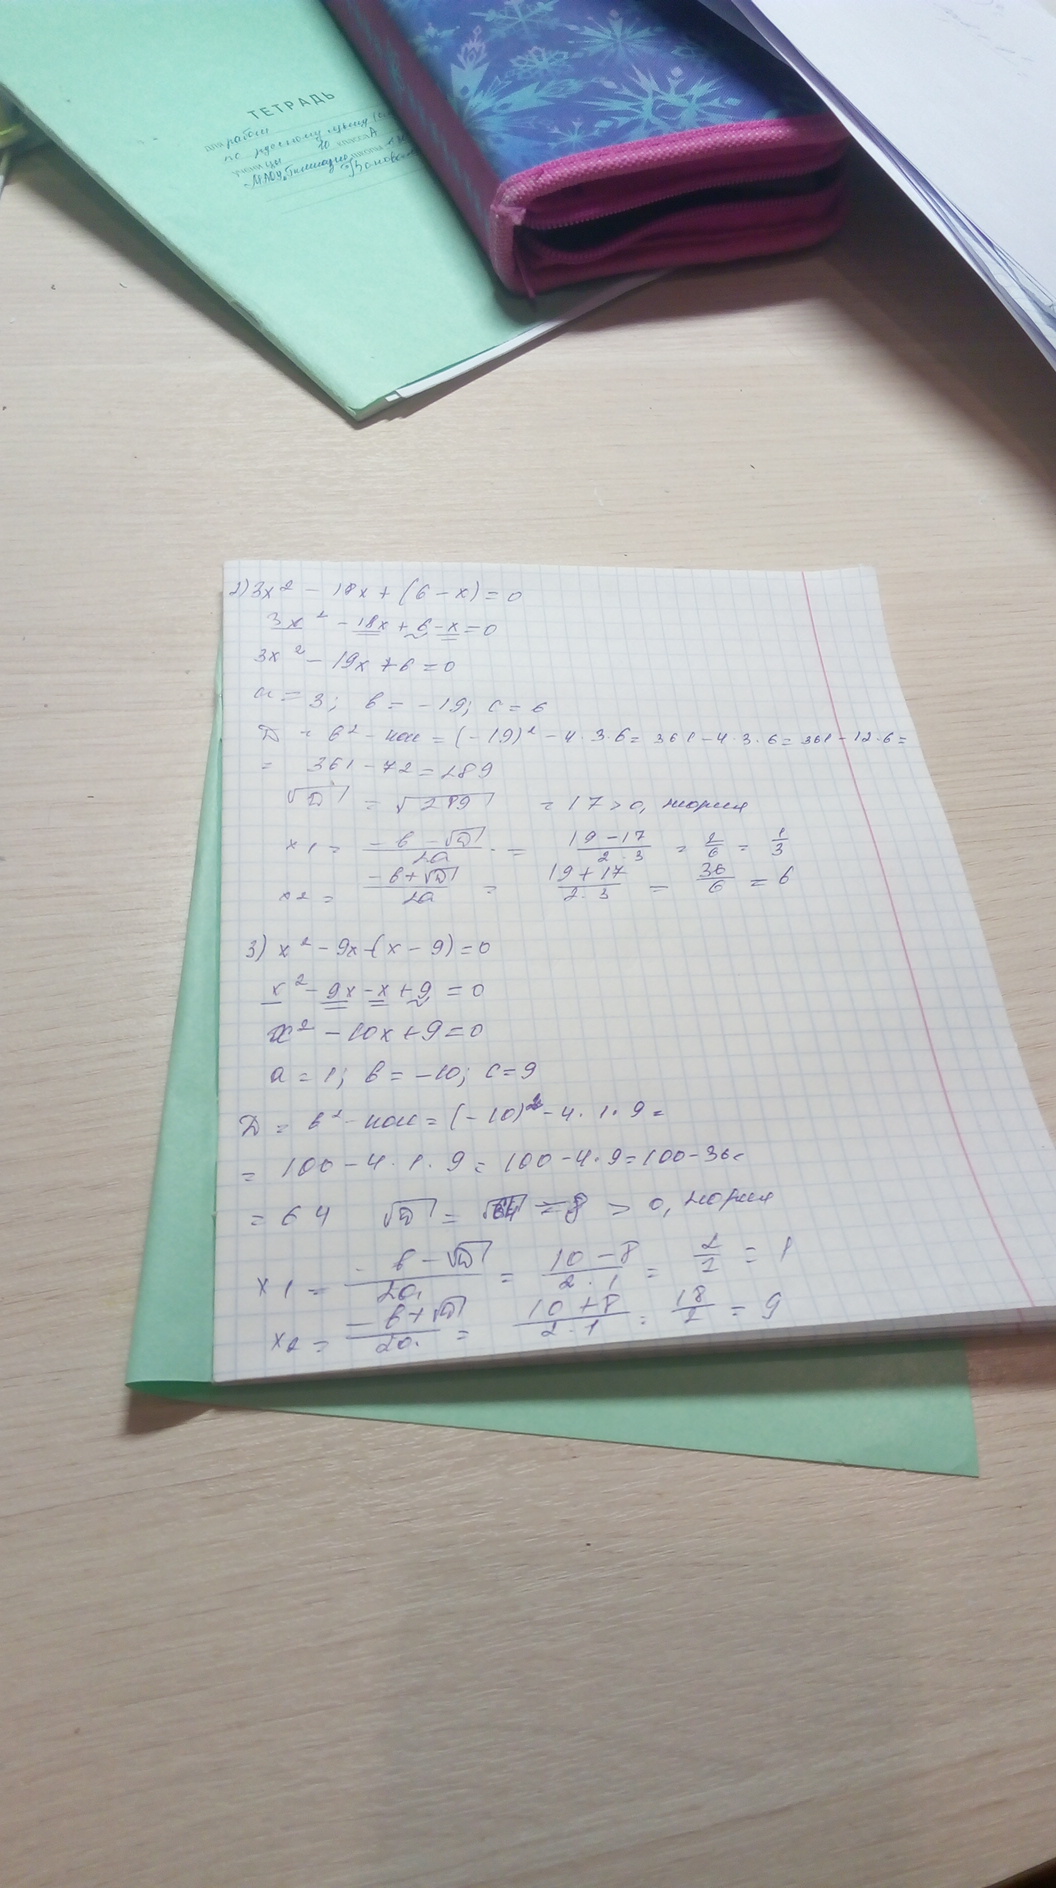 ТЕТРАДЬ
для работ
по русскому языку
ученицы 10 класса А
МАОУ "Гимназия
2) 3x² - 18x + (6 - x) = 0
3x² - 18x + 6 - x = 0
3x² - 19x + 6 = 0
a = 3; b = -19; c = 6
D = b² - 4ac = (-19)² - 4 · 3 · 6 = 361 - 4 · 3 · 6 = 361 - 12 · 6 =
= 361 - 72 = 289
√D = √289 = 17 > 0, 2 корня
x1 = (-b - √D)/2a = (19 - 17)/(2 · 3) = 2/6 = 1/3
x2 = (-b + √D)/2a = (19 + 17)/(2 · 3) = 36/6 = 6
3) x² - 9x - (x - 9) = 0
x² - 9x - x + 9 = 0
x² - 10x + 9 = 0
a = 1; b = -10; c = 9
D = b² - 4ac = (-10)² - 4 · 1 · 9 =
= 100 - 4 · 1 · 9 = 100 - 4 · 9 = 100 - 36 =
= 64 √D = √64 = 8 > 0, 2 корня
x1 = (-b - √D)/2a = (10 - 8)/(2 · 1) = 2/2 = 1
x2 = (-b + √D)/2a = (10 + 8)/(2 · 1) = 18/2 = 9